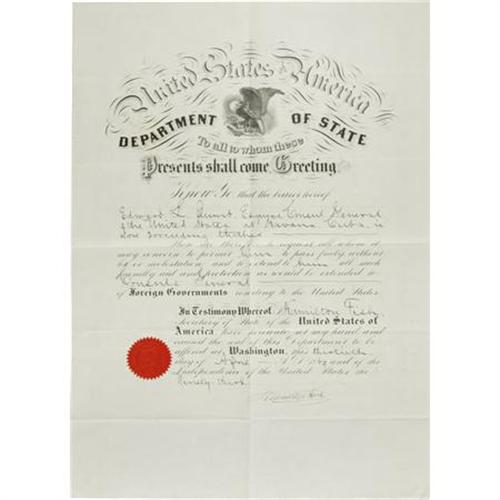 United States of America
DEPARTMENT OF STATE
To all to whom these
Presents shall come Greeting
Know Ye that the bearer hereof
Edward L. Esquire Consul General
of the United States at Havana Cuba, is
now proceeding thither
These are therefore to request all whom it
may concern to permit him to pass freely without
let or molestation and to extend to him all such
friendly aid and protection as would be extended to
Consuls General
of Foreign Governments resorting to the United States
In Testimony Whereof, I Hamilton Fish,
Secretary of State of the United States of
America have hereunto set my hand and
caused the seal of this Department to be
affixed at Washington, this
day of A.D. and of the
Independence of the United States the
Ninety third
Hamilton Fish